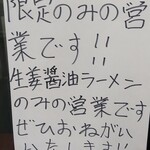 限定のみの営
業です!!
生姜醤油ラーメン
のみの営業です
ぜひおねがい
いたします!!